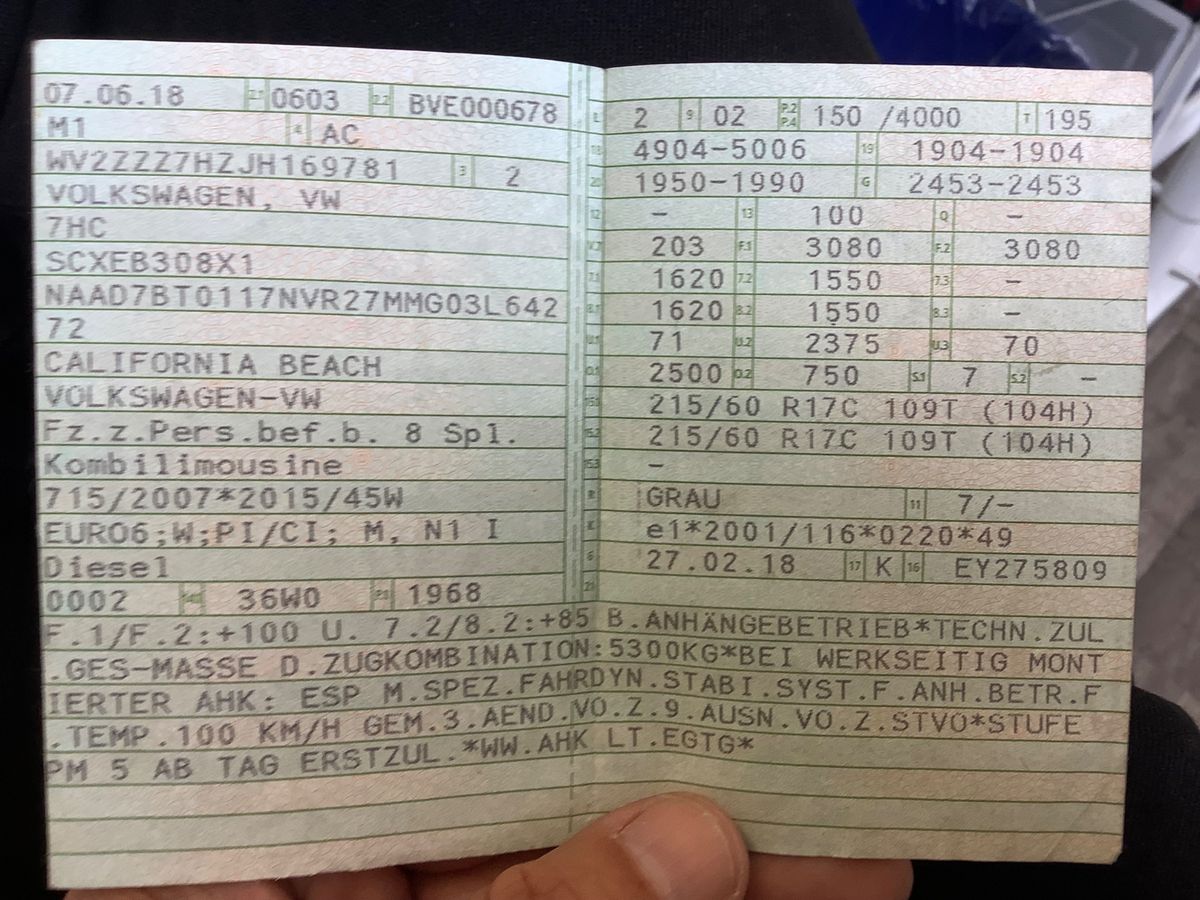 07.06.18 2.1 0603 2.2 BVE000678
M1 4 AC
WV2ZZZ7HZJH169781 3 2
VOLKSWAGEN, VW
7HC
SCXEB308X1
NAAD7BT0117NVR27MMG03L642
72
CALIFORNIA BEACH
VOLKSWAGEN-VW
Fz.z.Pers.bef.b. 8 Spl.
Kombilimousine
715/2007*2015/45W
EURO6;W;PI/CI; M, N1 I
Diesel
0002 14.1 36W0 P.1 1968
L 2 9 02 P.2 P.4 150 /4000 T 195
18 4904-5006 19 1904-1904
20 1950-1990 G 2453-2453
12 - 13 100 Q -
V.7 203 F.1 3080 F.2 3080
7.1 1620 7.2 1550 7.3 -
8.1 1620 8.2 1550 8.3 -
U.1 71 U.2 2375 U.3 70
O.1 2500 O.2 750 S.1 7 S.2 -
15.1 215/60 R17C 109T (104H)
15.2 215/60 R17C 109T (104H)
15.3 -
R GRAU 11 7/-
K e1*2001/116*0220*49
6 27.02.18 17 K 16 EY275809
21
F.1/F.2:+100 U. 7.2/8.2:+85 B.ANHÄNGEBETRIEB*TECHN.ZUL
.GES-MASSE D.ZUGKOMBINATION:5300KG*BEI WERKSEITIG MONT
IERTER AHK: ESP M.SPEZ.FAHRDYN.STABI.SYST.F.ANH.BETR.F
.TEMP.100 KM/H GEM.3.AEND.VO.Z.9.AUSN.VO.Z.STVO*STUFE
PM 5 AB TAG ERSTZUL.*WW.AHK LT.EGTG*